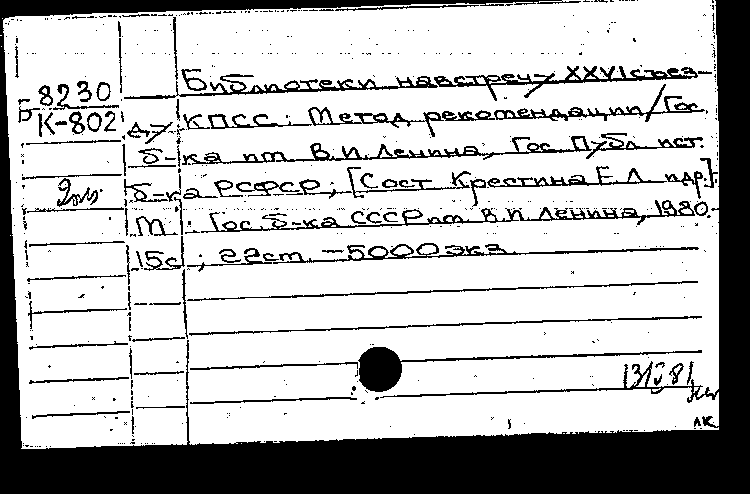 Б-8230
К-802
2 экз.
Библиотеки навстречу XXVI съез-
ду КПСС: Метод. рекомендации/Гос.
б-ка им. В.И.Ленина; Гос. Публ. ист.
б-ка РСФСР; [Сост. Крестина Е.Л. и др.].
М.: Гос. б-ка СССР им. В.И. Ленина, 1980.-
15с.; 22см. -5000экз.
АК